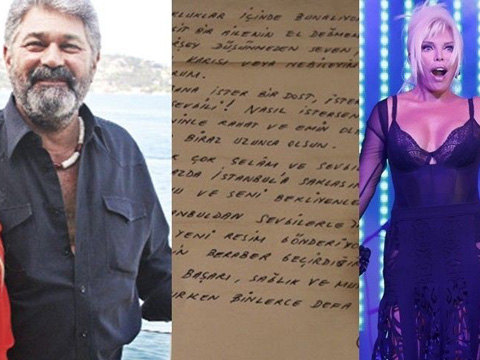 LUKLAR İÇİNDE BUNALIYO
BİR AİLENİN EL DEĞME
DÜŞÜNMEDEN SEVEN
KARISI VEYA
RUM.
SANA İSTER BİR DOST, İSTE
SEVGİLİ! NASIL İSTERSEN
RAHAT VE EMİN OL
BİRAZ UZUNCA OLSUN.
ÇOK SELÂM VE SEVGİL
İSTANBUL'A
VE SENİ BEKLİYENLE
İSTANBULDAN SEVGİLERLE
YENİ RESİM GÖNDERİYO
BERABER GEÇİRDİĞİ
BAŞARI, SAĞLIK VE MU
BİNLERCE DEFA